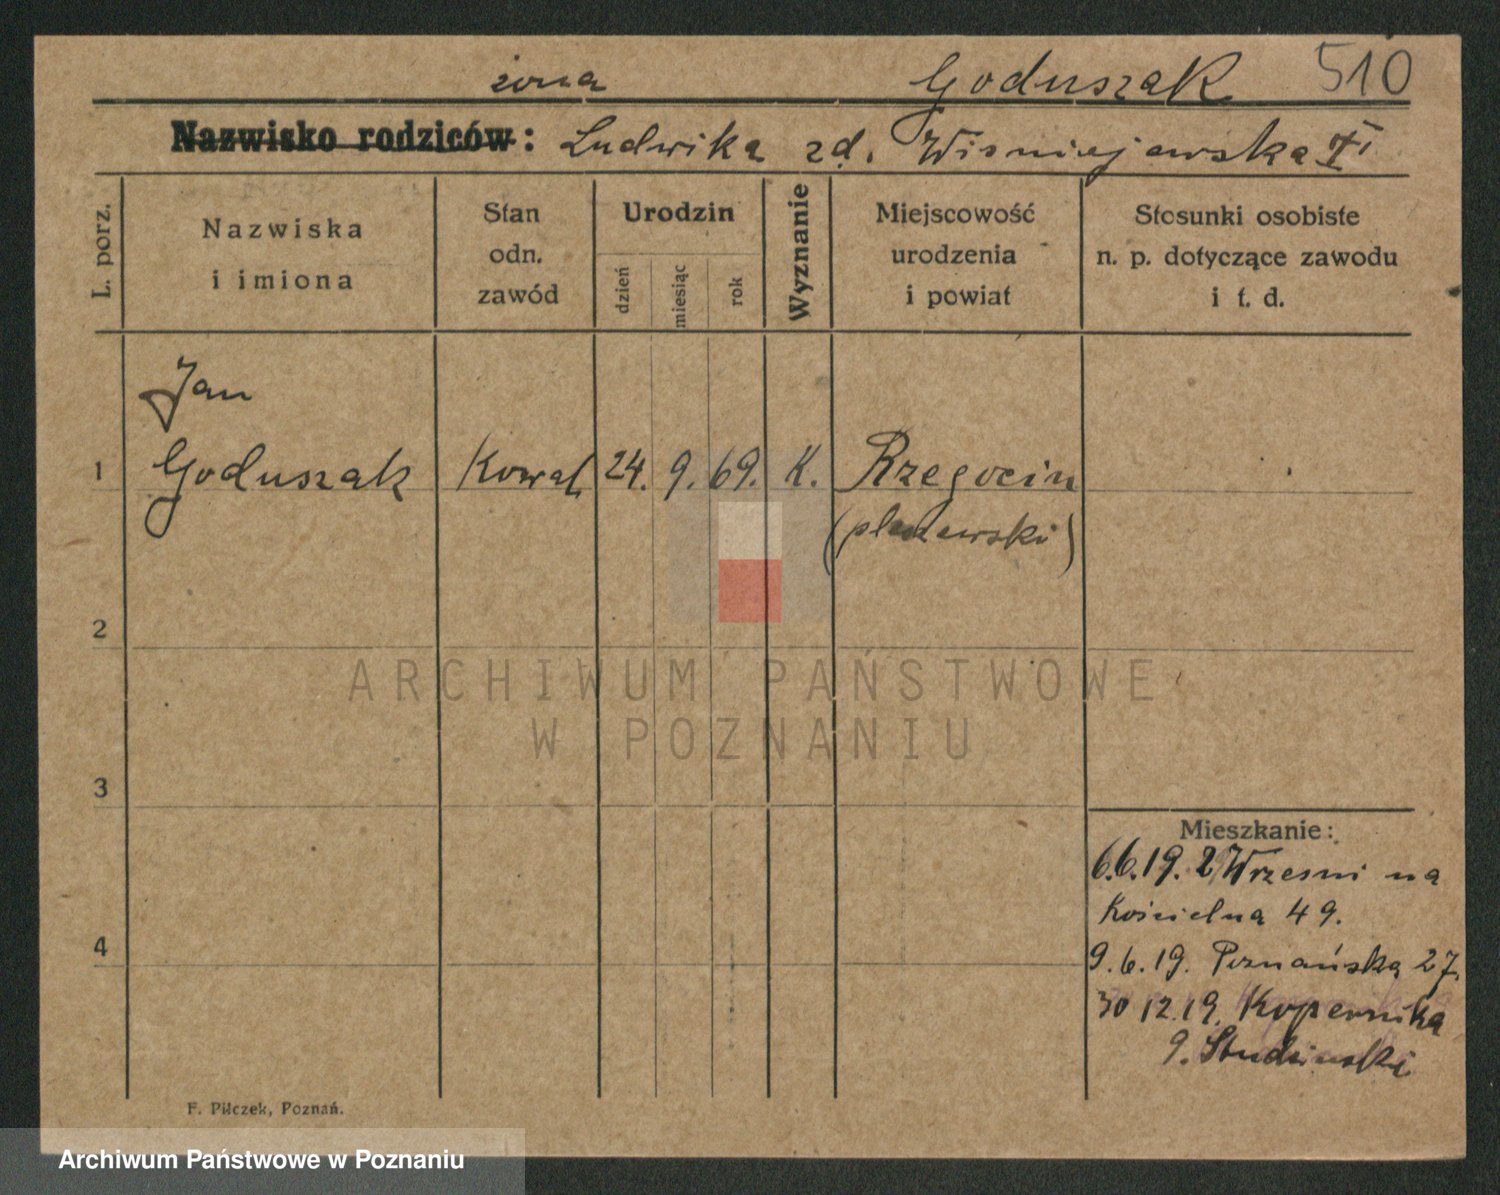 żona Goduszak 510
Nazwisko rodziców: Ludwika zd. Wisniejewska
L. porz.
Nazwiska i imiona
Stan odn. zawód
Urodzin
dzień miesiąc rok
Wyznanie
Miejscowość urodzenia i powiat
Stosunki osobiste n. p. dotyczące zawodu i t. d.
Jan
1 Goduszak Kowal 24. 9. 69. K. Rzegocin
(pleszewski)
2
ARCHIWUM PAŃSTWOWE
W POZNANIU
3
Mieszkanie:
6.6.19. z Wrzesni na
Kościelna 49.
4
9.6.19. Poznańska 27.
30 12.19. Kopernika
9. Studzinski
F. Pilczek, Poznań.
Archiwum Państwowe w Poznaniu